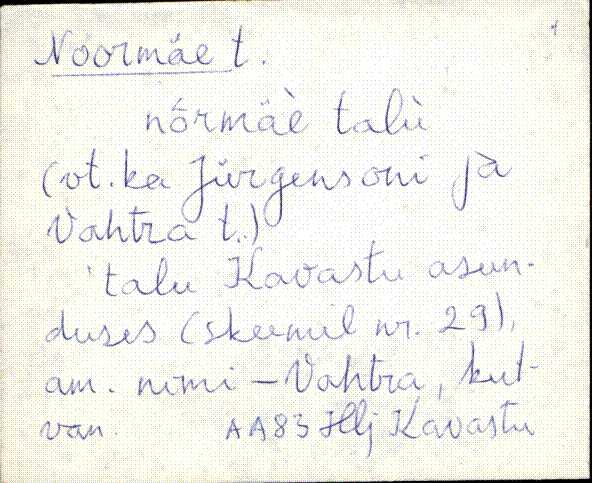 Noormäe t.
nõrmäè talù
(vt. ka Jürgensoni ja
Vahtra t.)
talu Kavastu asun-
duses (skeemil nr. 29),
am. nimi – Vahtra, kut-
van. AA83 Hlj Kavastu